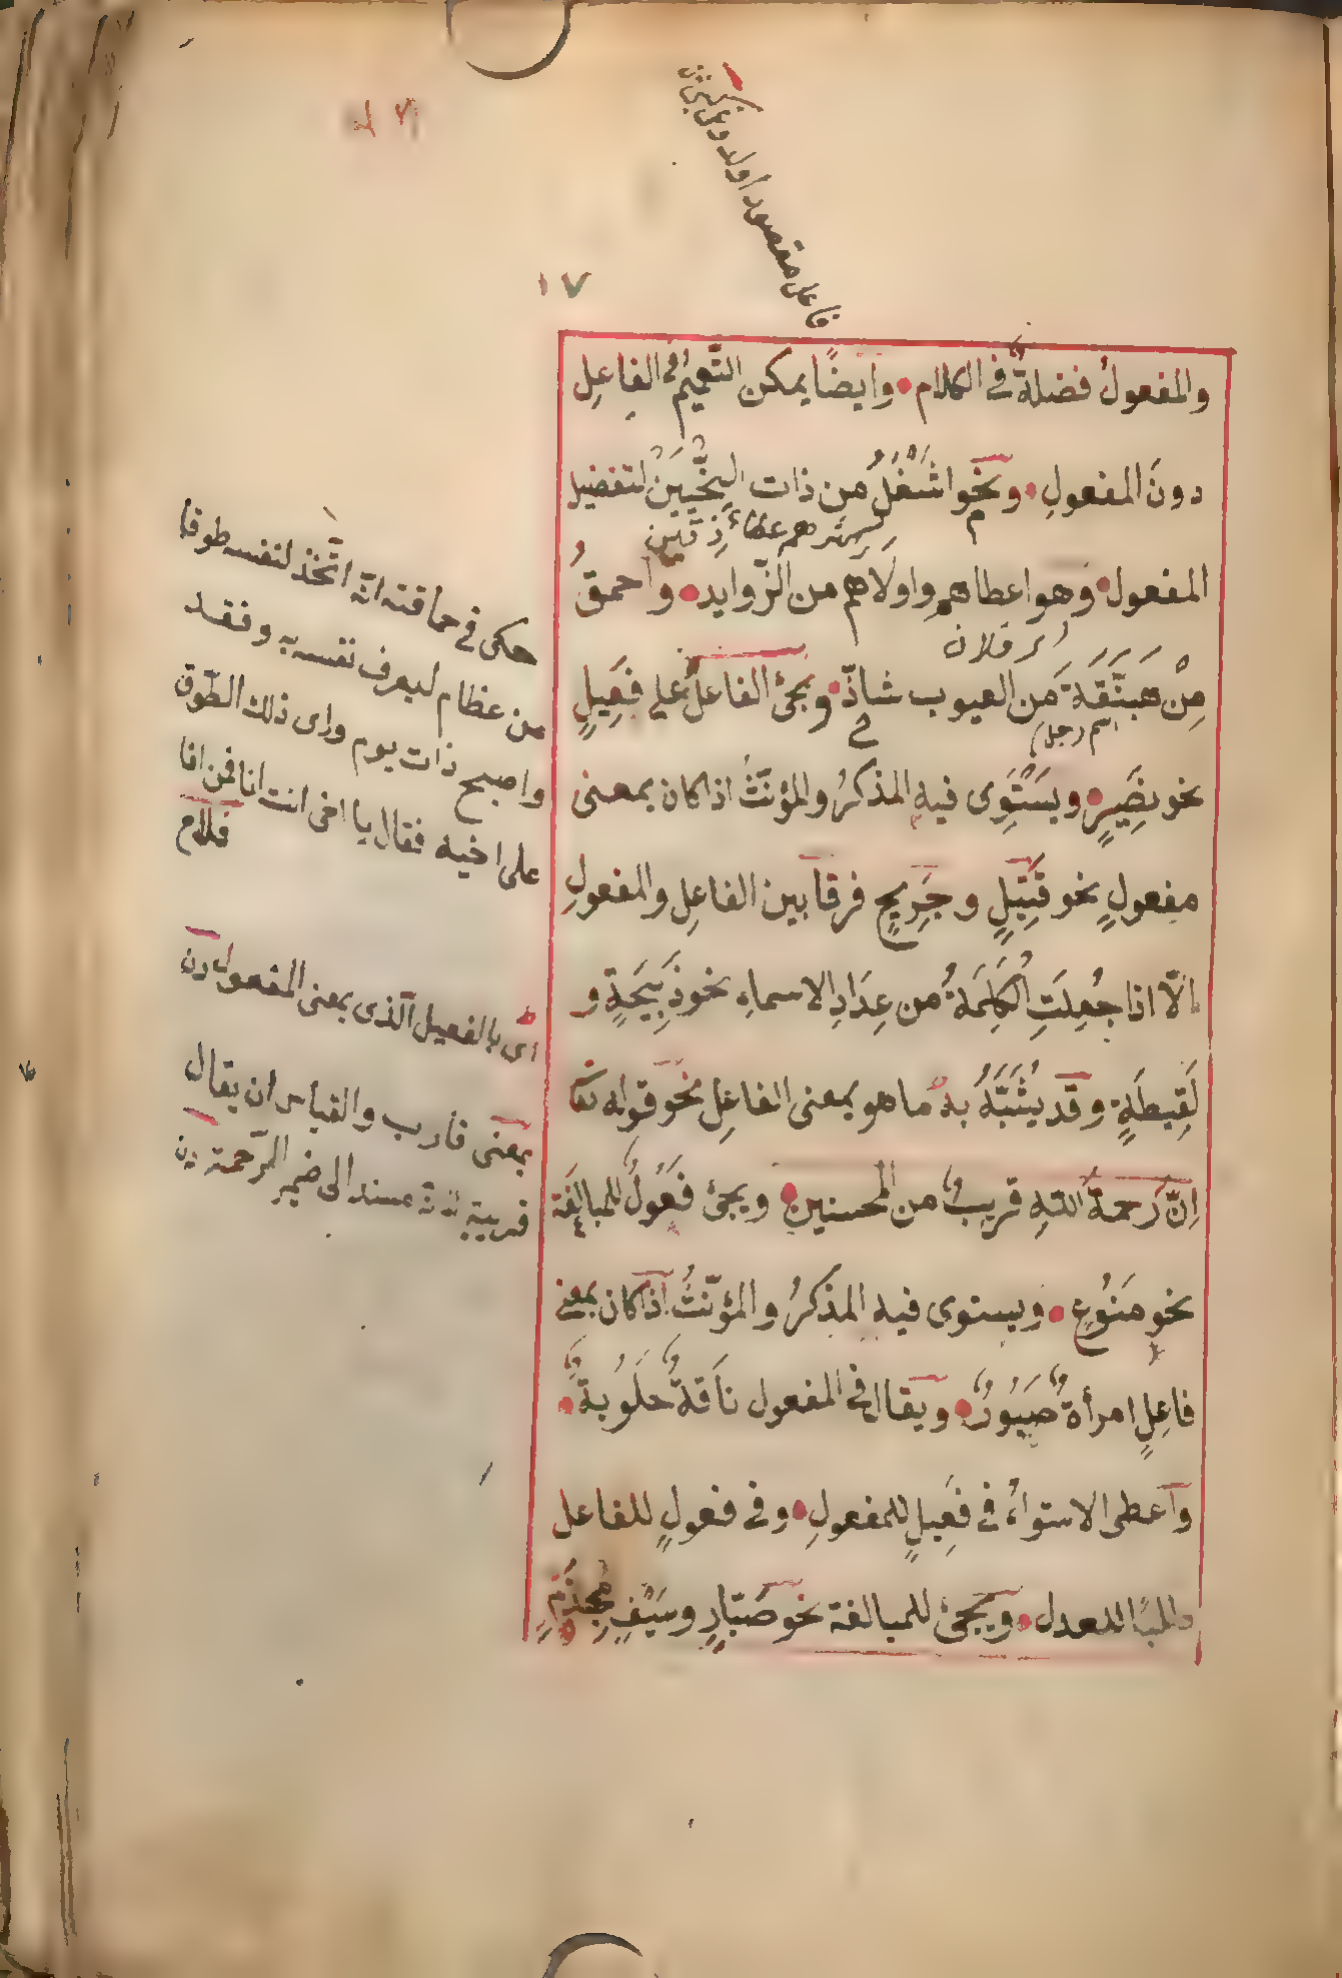 ١٧
والمفعولُ فضلةٌ في الكلام • وايضًا يمكن التّعميمُ في الفاعِلِ
دونَ المفعولِ • ونحو اشْغَلُ من ذات النِّحْيَيْنِ لتفضيل
المفعول • وهو اعطاهم واولاهم من الزّوايد • واحمقُ
اى فلان
مِنْ هَبَنَّقَةَ مَن العيوب شاذّ • ويجئ الفاعلُ على فَعِيلٍ
اسم رجل
نحو نصَِيرٍ • ويَسْتَوِى فيه المذكرُ والمؤنّثُ اذا كان بمعنى
مفعولٍ نحو قَتِيلٍ وجَرِيحٍ فرقا بين الفاعِلِ والمفعولِ
الّا اذا جُعِلَتِ الكَلِمَةُ من عِدَادِ الاسماءِ نحو ذَبِيَحةٍ و
لَقِيطَةٍ وقد يُشَبَّهُ به ما هو بمعنى الفاعِلِ نحو قوله تعا
اِنّ رَحمةَ اللهِ قريبٌ من المحسنين • ويجئ فَعُولٌ للمبالغَة
نحو مَنوُعٍ • ويستوى فيه المذكرُ والمؤنّثُ اذا كان بمعنى
فاعِلٍ امرأةٌ صَبُورٌ • ويقال في المفعول نَاقةٌ حلَوُبةٌ •
واَعطى الاستواءُ في فَعِيلٍ للمفعولِ • وفي فعولٍ للفاعل
للعدل • ويَجئ للمبالغة نحو صَبّارٍ وسَيْفٍ مِجْذَمٍ
حكى في حماقته انّه اتّخذ لنفسه طوقا
من عظام ليعرف نفسه به وفقد
واصبح ذات يوم وراى ذلك الطّوق
على اخيه فقال يا اخى انت انا فمن انا
اى بالفعيل الّذى بمعنى المفعول
بمعنى قارب والقياس ان يقال
قريبة لانّه مسند الى ضمير الرّحمة